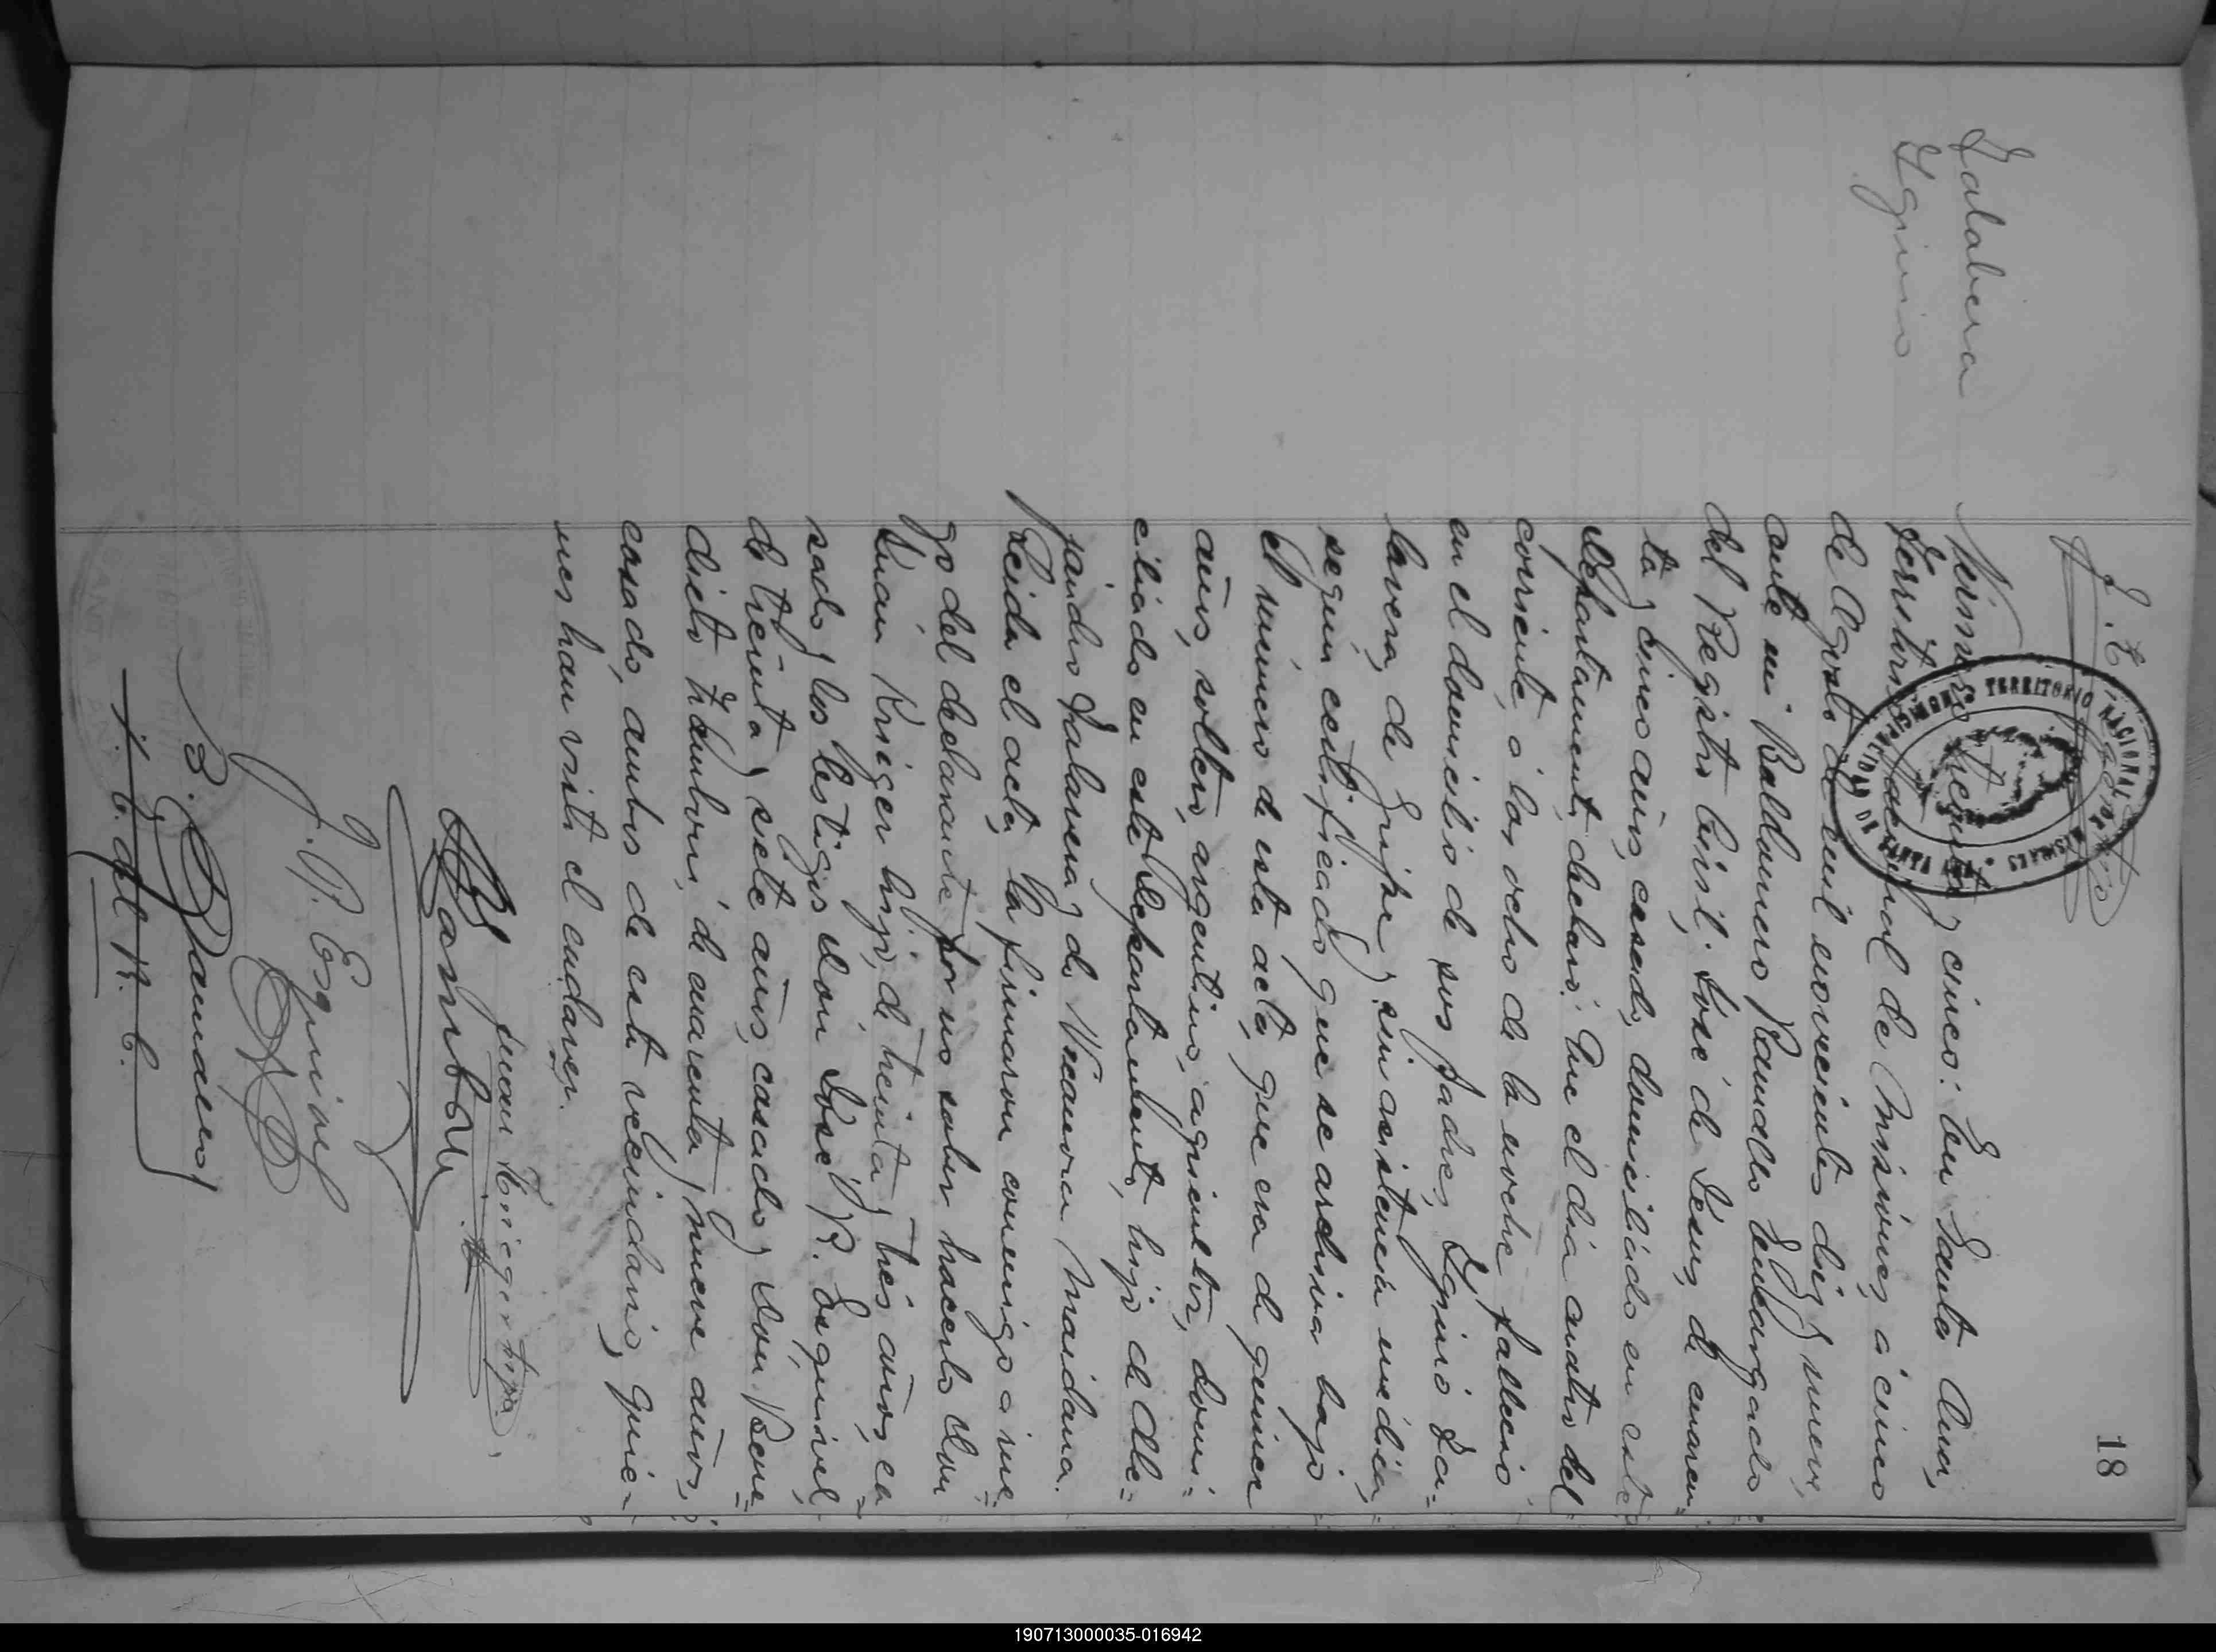 18
J. E.
Talabera
Iginio
Número cincuenta y cinco: En Santa Ana,
Territorio Nacional de Misiones, a cinco
de Agosto de mil novecientos diez y nueve,
ante mi Baldomero Ramallo Encargado
del Registro Civil: José de Jesus, de cuaren=
ta y cinco años, casado, domiciliado en este
Departamento, declaró: Que el día cuatro del
corriente, a las ocho de la noche falleció
en el domicilio de sus padres, Iginio Ta=
lavera, de Gripe, sin asistencia media,
según certificado que se archiva bajo
el número de esta acta, que era de quince
años, soltero, argentino, agricultor, domi=
ciliado en este Departamento, hijo de Ale=
jandro Talavera, y de Nicanora Maidana.
Leida el acta, la firmaron conmigo a rue=
go del declarante por no saber hacerlo Don
Juan Kriger hijo, de treinta y tres años, ca=
sado, y los testigos Don José R. Esquivel,
de treinta y siete años, casado, y Don Bene=
dicto Zamboni, de cuarenta y nueve años,
casado, ambos de este vecindario, quie=
nes han visto el cadaver.
Juan Krieger hijo
B Zamboni
J. R. Esquivel
B. Ramallo
J. E. del R. C.
TERRITORIO NACIONAL DE MISIONES
190713000035-016942